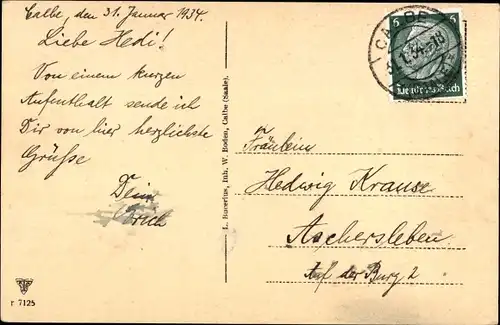 Calbe, den 31. Januar 1934.
Liebe Hedi!
Von einem kurzen
Aufenthalt sende ich
Dir von hier herzlichste
Grüße
Dein
Erich
r 7125
L. Bucerius, Inh. W. Boden, Calbe (Saale).
CALBE
6
Deutsches Reich
Fräulein
Hedwig Krause
Aschersleben
Auf der Burg 2